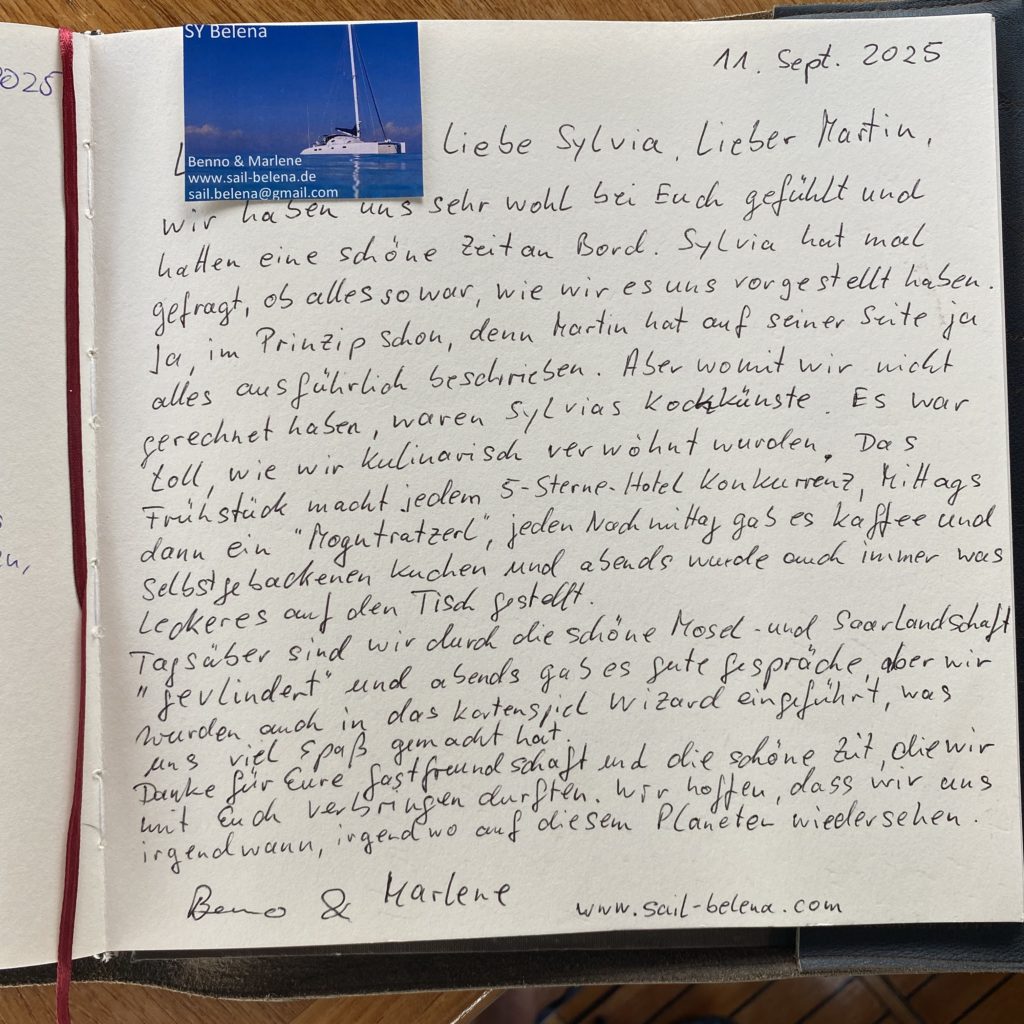 2025
SY Belena
Benno & Marlene
www.sail-belena.de
sail.belena@gmail.com
11. Sept. 2025
Liebe Sylvia, Lieber Martin,
wir haben uns sehr wohl bei Euch gefühlt und
hatten eine schöne Zeit an Bord. Sylvia hat mal
gefragt, ob alles so war, wie wir es uns vorgestellt haben.
Ja, im Prinzip schon, denn Martin hat auf seiner Seite ja
alles ausführlich beschrieben. Aber womit wir nicht
gerechnet haben, waren Sylvias Kochkünste. Es war
toll, wie wir kulinarisch verwöhnt wurden. Das
Frühstück macht jedem 5-Sterne-Hotel Konkurrenz, Mittags
dann ein "Mogntratzerl", jeden Nachmittag gab es Kaffee und
selbstgebackenen Kuchen und abends wurde auch immer was
Leckeres auf den Tisch gestellt.
Tagsüber sind wir durch die schöne Mosel- und Saarlandschaft
"gevlindert" und abends gab es gute Gespräche, aber wir
wurden auch in das Kartenspiel Wizard eingeführt, was
uns viel Spaß gemacht hat.
Danke für Eure Gastfreundschaft und die schöne Zeit, die wir
mit Euch verbringen durften. Wir hoffen, dass wir uns
irgendwann, irgendwo auf diesem Planeten wiedersehen.
Benno & Marlene
www.sail-belena.com